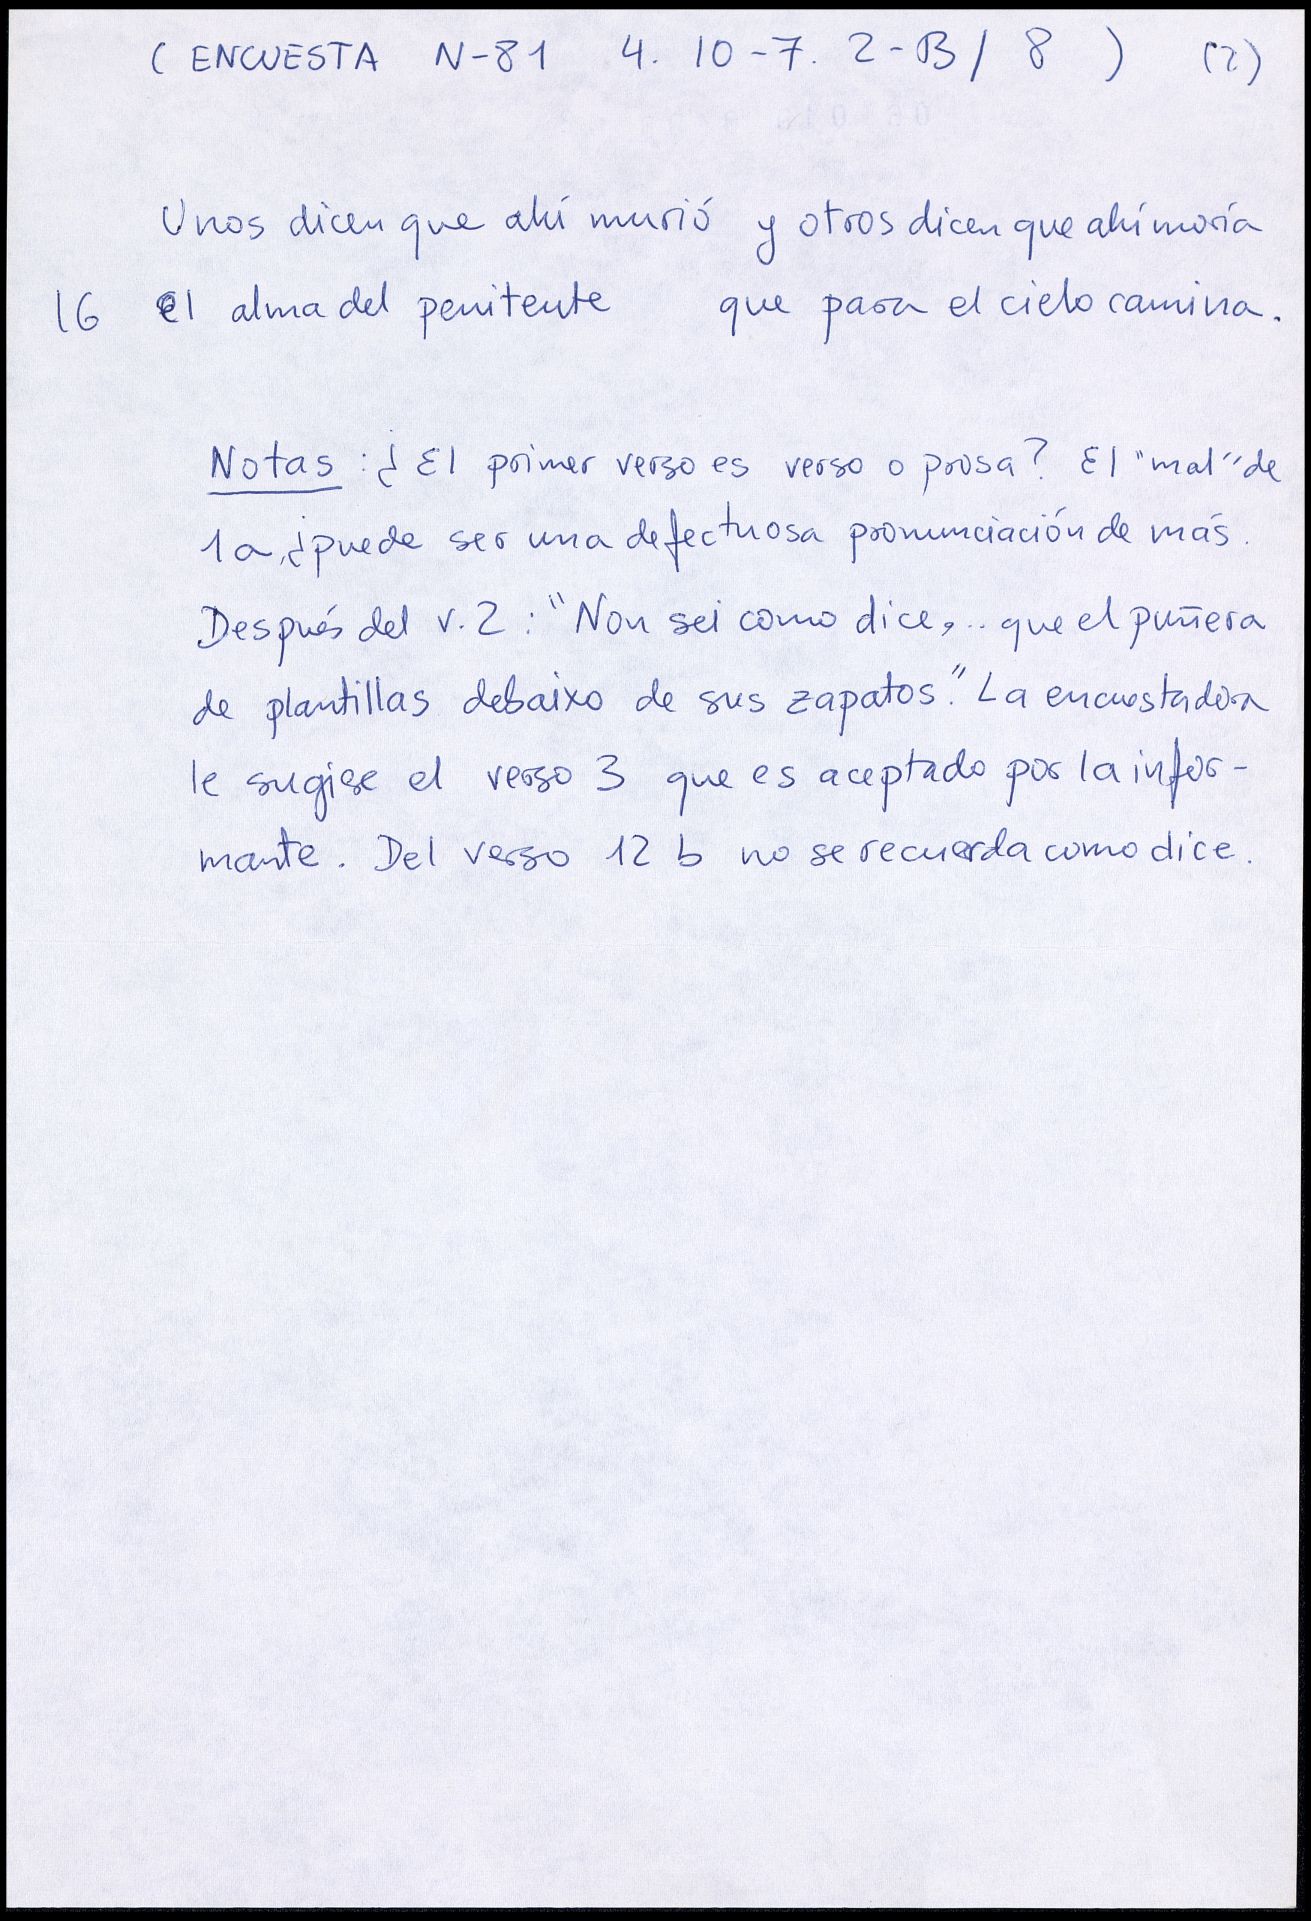 ( ENCUESTA N-81 4. 10-7. 2-B/ 8 ) (2)
Unos dicen que ahí murió y otros dicen que ahí moría
16 el alma del penitente que para el cielo camina.
Notas : ¿ El primer verso es verso o prosa? El "mal" de
1a, ¿puede ser una defectuosa pronunciación de más.
Después del v. 2 : "Non sei como dice, .. que el puñera
de plantillas debaixo de sus zapatos." La encuestadora
le sugire el verso 3 que es aceptado por la infor-
mante. Del verso 12 b no se recuerda como dice.